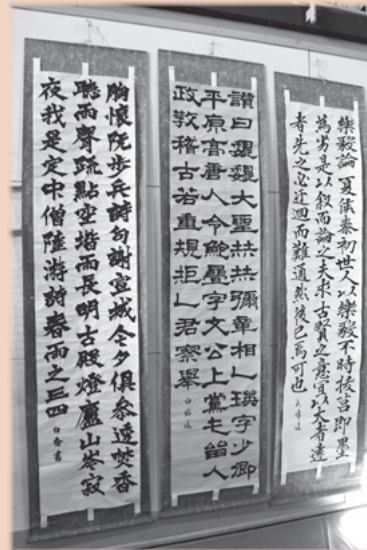 樂毅論 夏侯泰初 世人以樂毅不時拔莒即墨
為劣是以叙而論之夫求古賢之意宜以大者遠
者先之必迂迴而難通然後已焉可也
讚曰巍巍大聖赫赫彌章相乙瑛字少卿
平原高唐人令鮑疊字文公上黨屯留人
政敎稽古若重規矩乙君察舉
胸懷阮步兵詩句謝宣城今夕俱參透焚香
聽雨聲疏點空堦雨長明古殿燈廬山岑寂
夜我是定中僧陸游詩春雨之三四 白香書